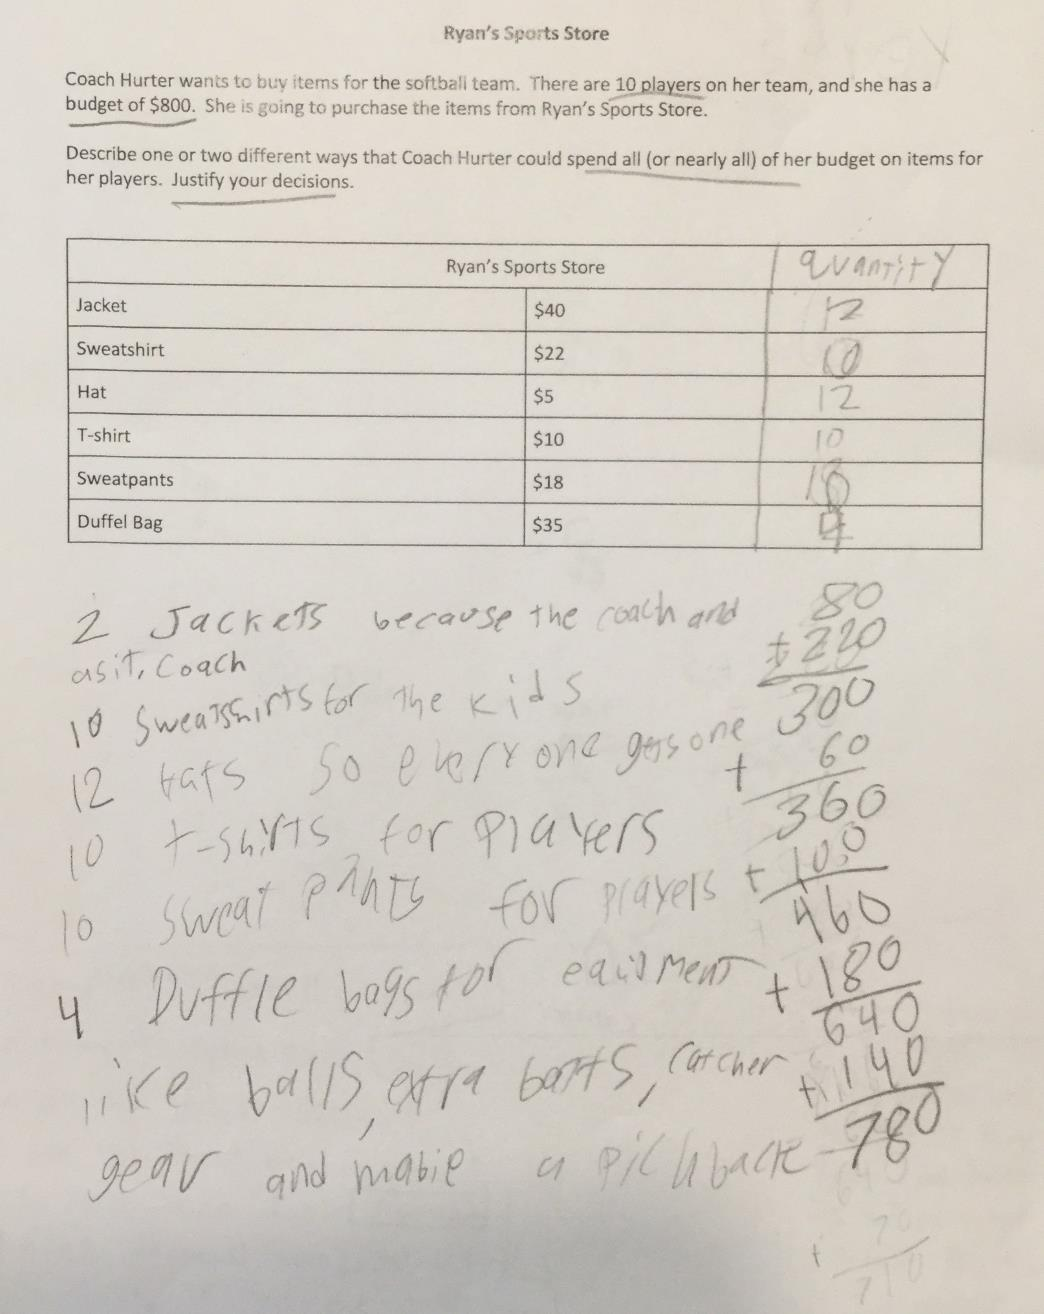 Ryan's Sports Store
Coach Hurter wants to buy items for the softball team. There are 10 players on her team, and she has a
budget of $800. She is going to purchase the items from Ryan's Sports Store.
Describe one or two different ways that Coach Hurter could spend all (or nearly all) of her budget on items for
her players. Justify your decisions.
Ryan's Sports Store quantity
Jacket $40 2
Sweatshirt $22 10
Hat $5 12
T-shirt $10 10
Sweatpants $18 10
Duffel Bag $35 4
2 Jackets because the coach and 80
asit, Coach + 220
10 Sweatshirts for the kids 300
12 hats so everyone gets one + 60
360
10 t-shirts for players + 100
10 sweat pants for players 460
4 Duffle bags for + 180
640
like balls, extra batts, catcher + 140
gear and mabie a pichback 780
+ 70
710